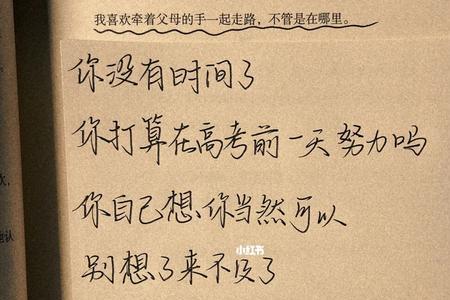 我喜欢牵着父母的手一起走路，不管是在哪里。
你没有时间了
你打算在高考前一天努力吗
你自己想，你当然可以
别想了来不及了
小红书